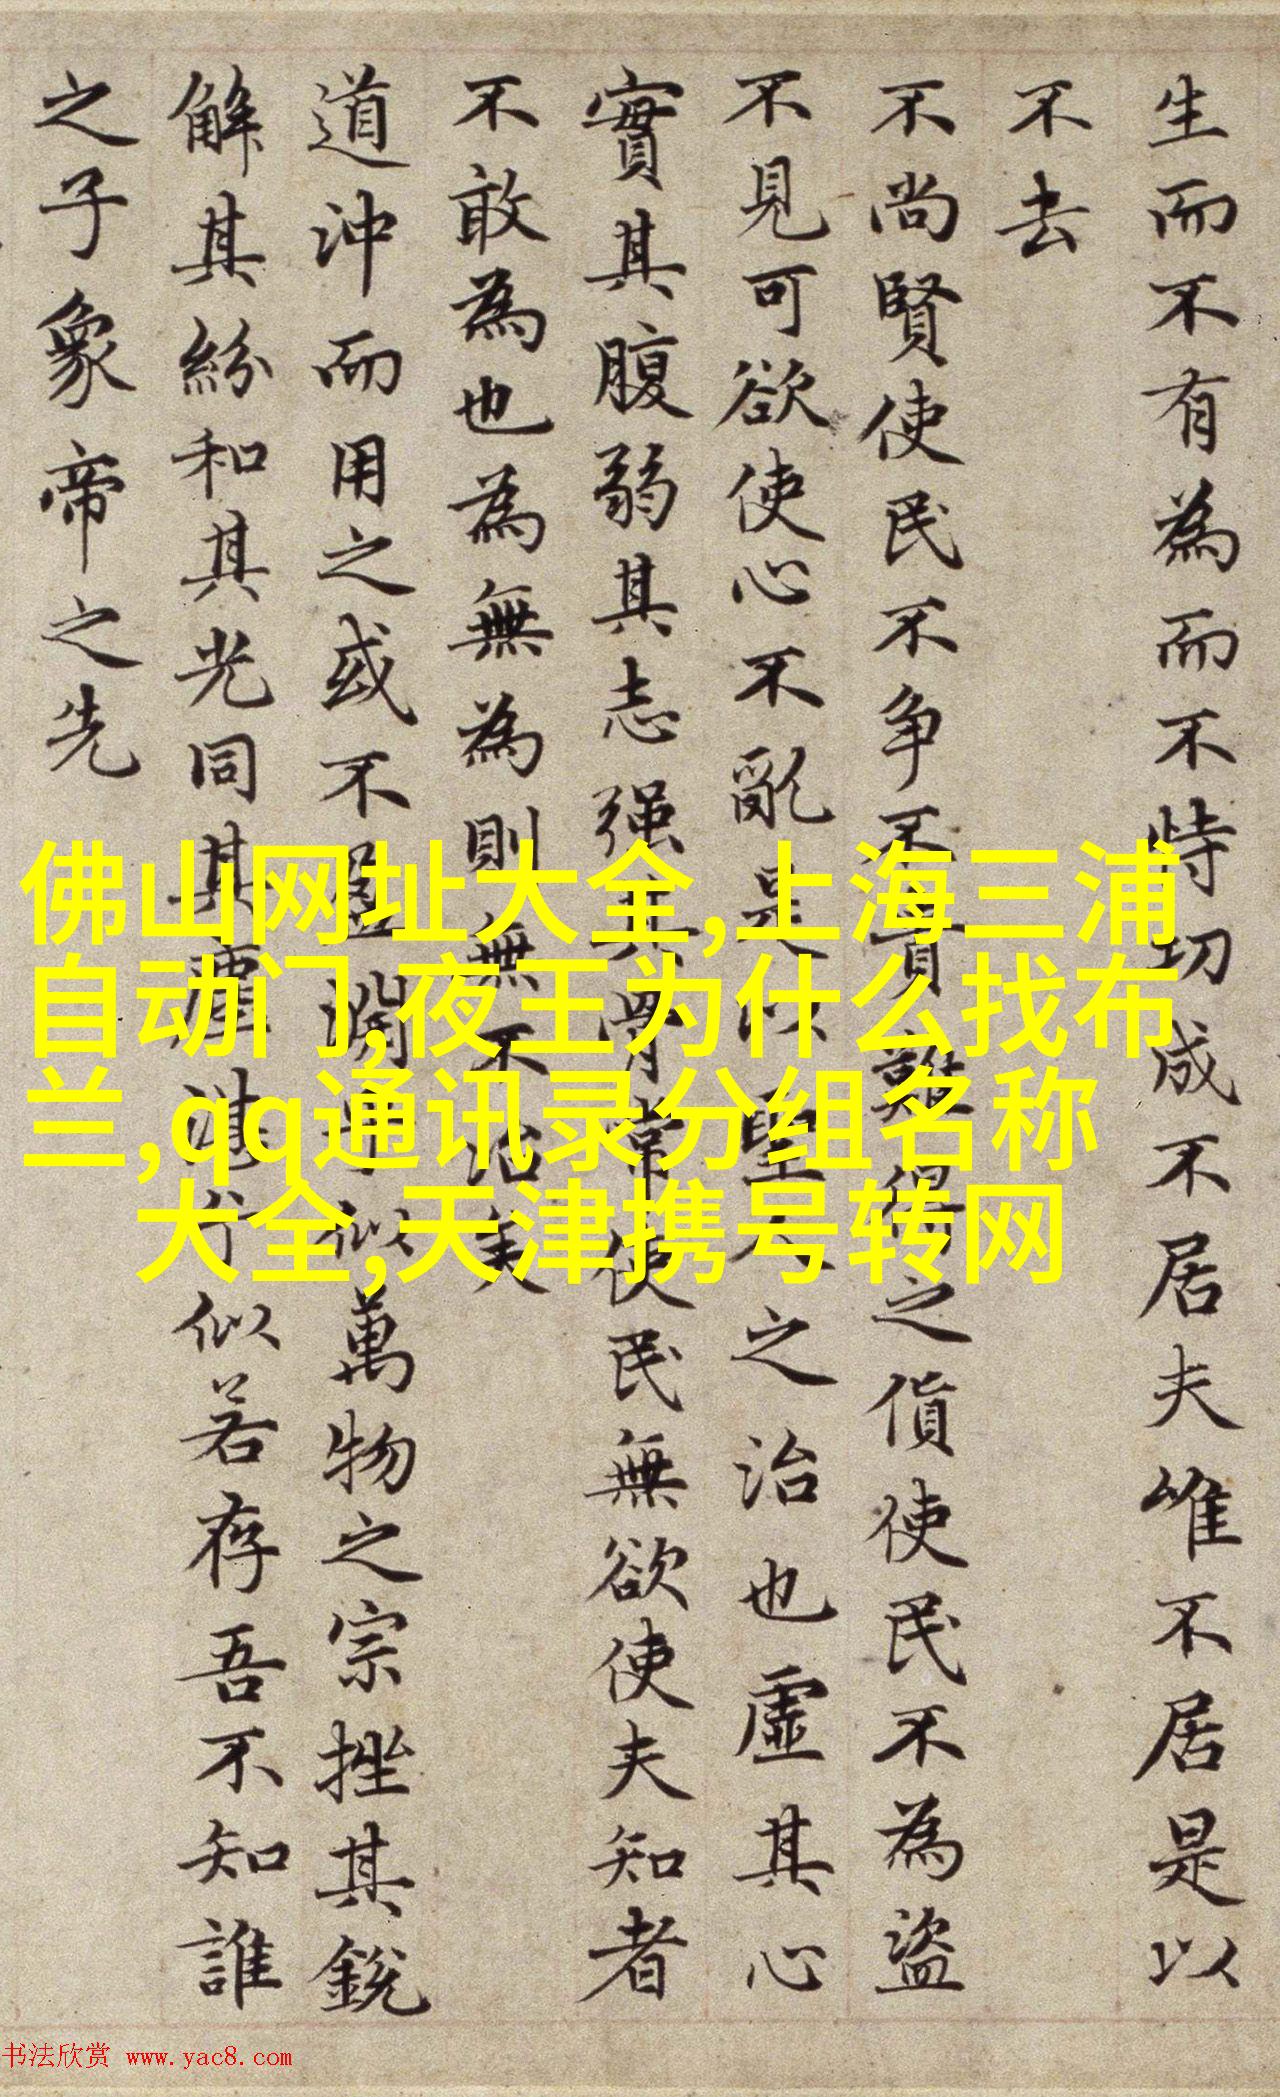 生而不有為而不恃功成不居夫唯不居是以
不去
不尚賢使民不争不貴難得之貨使民不為盜
不見可欲使心不亂是以聖人之治也虛其心
實其腹弱其志强其骨常使民無欲使夫知者
不敢為也為無為則無不治矣
道沖而用之或不盈淵乎似萬物之宗挫其銳
解其紛和其光同其塵湛兮似若存吾不知誰
之子象帝之先
佛山网址大全,上海三浦
自动门,夜王为什么找布
兰,qq通讯录分组名称
大全,天津携号转网
书法欣赏 www.yac8.com